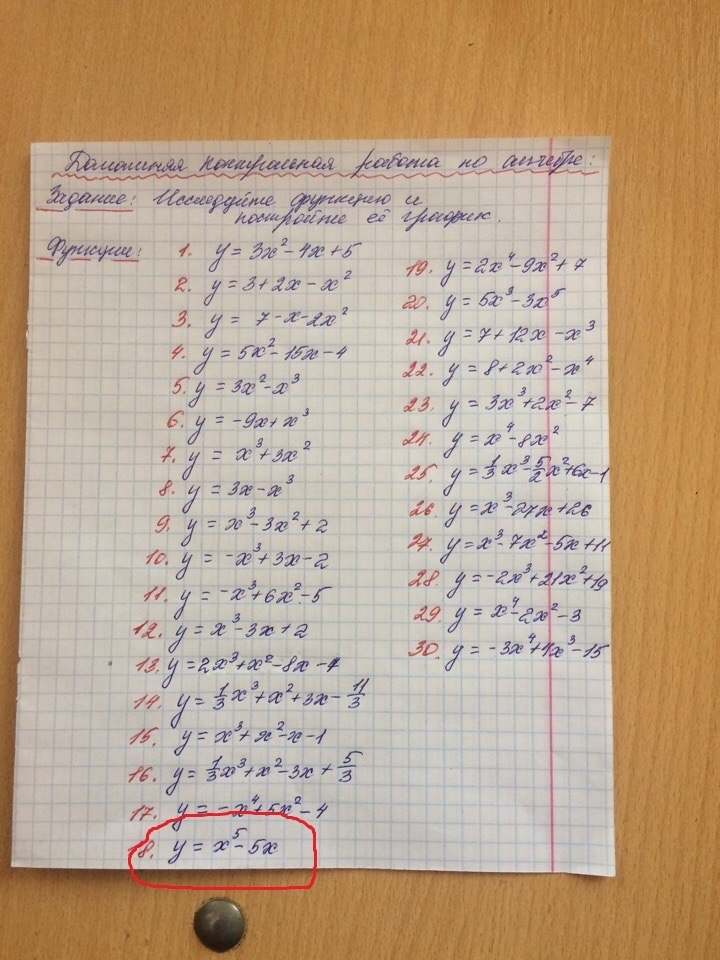 Домашняя контрольная работа по алгебре:
Задание: Исследуйте функцию и
постройте её график.
Функции:
1. y = 3x² - 4x + 5
2. y = 3 + 2x - x²
3. y = 7 - x - 2x²
4. y = 5x² - 15x - 4
5. y = 3x² - x³
6. y = -9x + x³
7. y = x³ + 3x²
8. y = 3x - x³
9. y = x³ - 3x² + 2
10. y = -x³ + 3x - 2
11. y = -x³ + 6x² - 5
12. y = x³ - 3x + 2
13. y = 2x³ + x² - 8x - 7
14. y = 1/3 x³ + x² + 3x - 11/3
15. y = x³ + x² - x - 1
16. y = 1/3 x³ + x² - 3x + 5/3
17. y = -x⁴ + 5x² - 4
18. y = x⁵ - 5x
19. y = 2x⁴ - 9x² + 7
20. y = 5x³ - 3x⁵
21. y = 7 + 12x - x³
22. y = 8 + 2x² - x⁴
23. y = 3x³ + 2x² - 7
24. y = x⁴ - 8x²
25. y = 1/3 x³ - 5/2 x² + 6x - 1
26. y = x³ - 27x + 26
27. y = x³ - 7x² - 5x + 11
28. y = -2x³ + 21x² + 19
29. y = x⁴ - 2x² - 3
30. y = -3x⁴ + 4x³ - 15